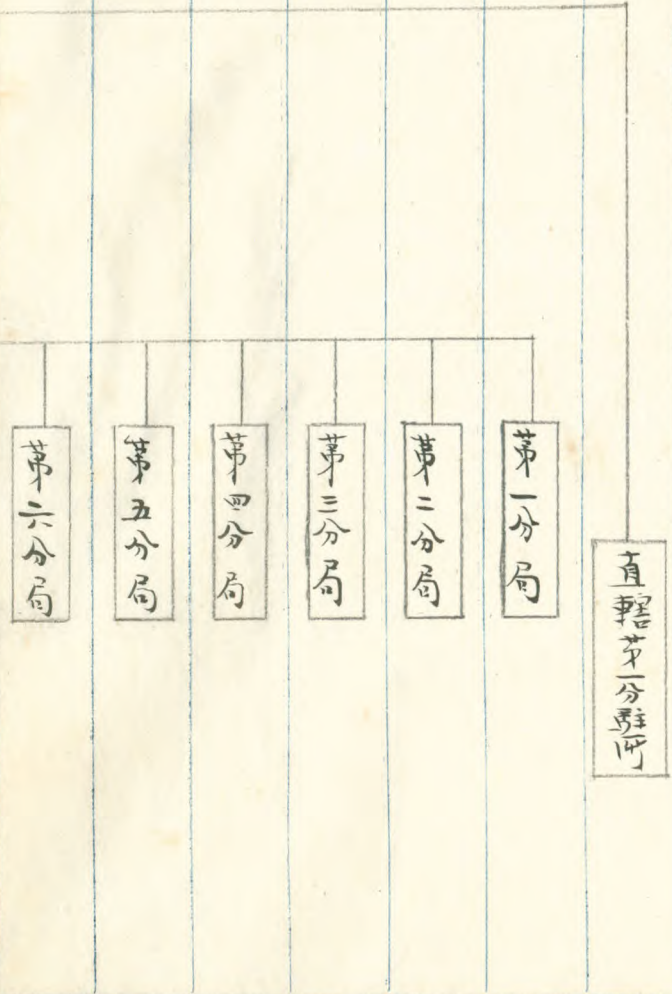 直轄第一分駐所
第一分局
第二分局
第三分局
第四分局
第五分局
第六分局